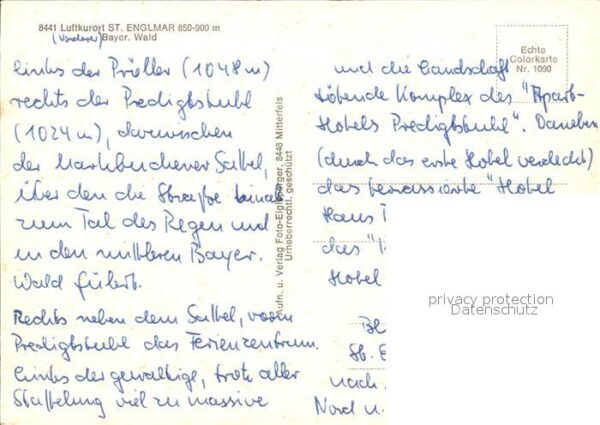 8441 Luftkurort ST. ENGLMAR 850-900 m
(Vorderer) Bayer. Wald
links der Pröller (1048 m)
rechts der Predigtstuhl
(1024 m), dazwischen
der Markbuchener Sattel,
über den die Straße hinab
zum Tal des Regen und
in den mittleren Bayer.
Wald führt.
Rechts neben dem Sattel, vorm
Predigtstuhl das Ferienzentrum.
Links der gewaltige, trotz aller
Staffelung viel zu massive
Aufn. u. Verlag Foto-Eiglsperger, 8446 Mitterfels
Urheberrechtl. geschützt
Echte
Colorkarte
Nr. 1090
und die Landschaft
tötende Komplex des "Apart-
Hotels Predigtstuhl". Daneben
(durch das erste Hotel verdeckt)
das terrassierte "Hotel
Haus
das
Hotel
St.
nach
Nord u.
privacy protection
Datenschutz